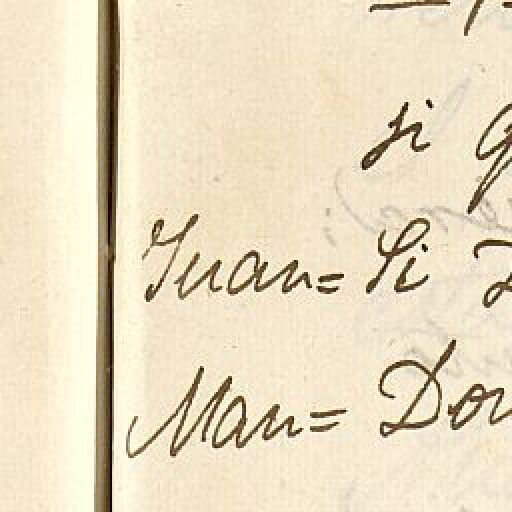 si
Juan= Si
Man= Don